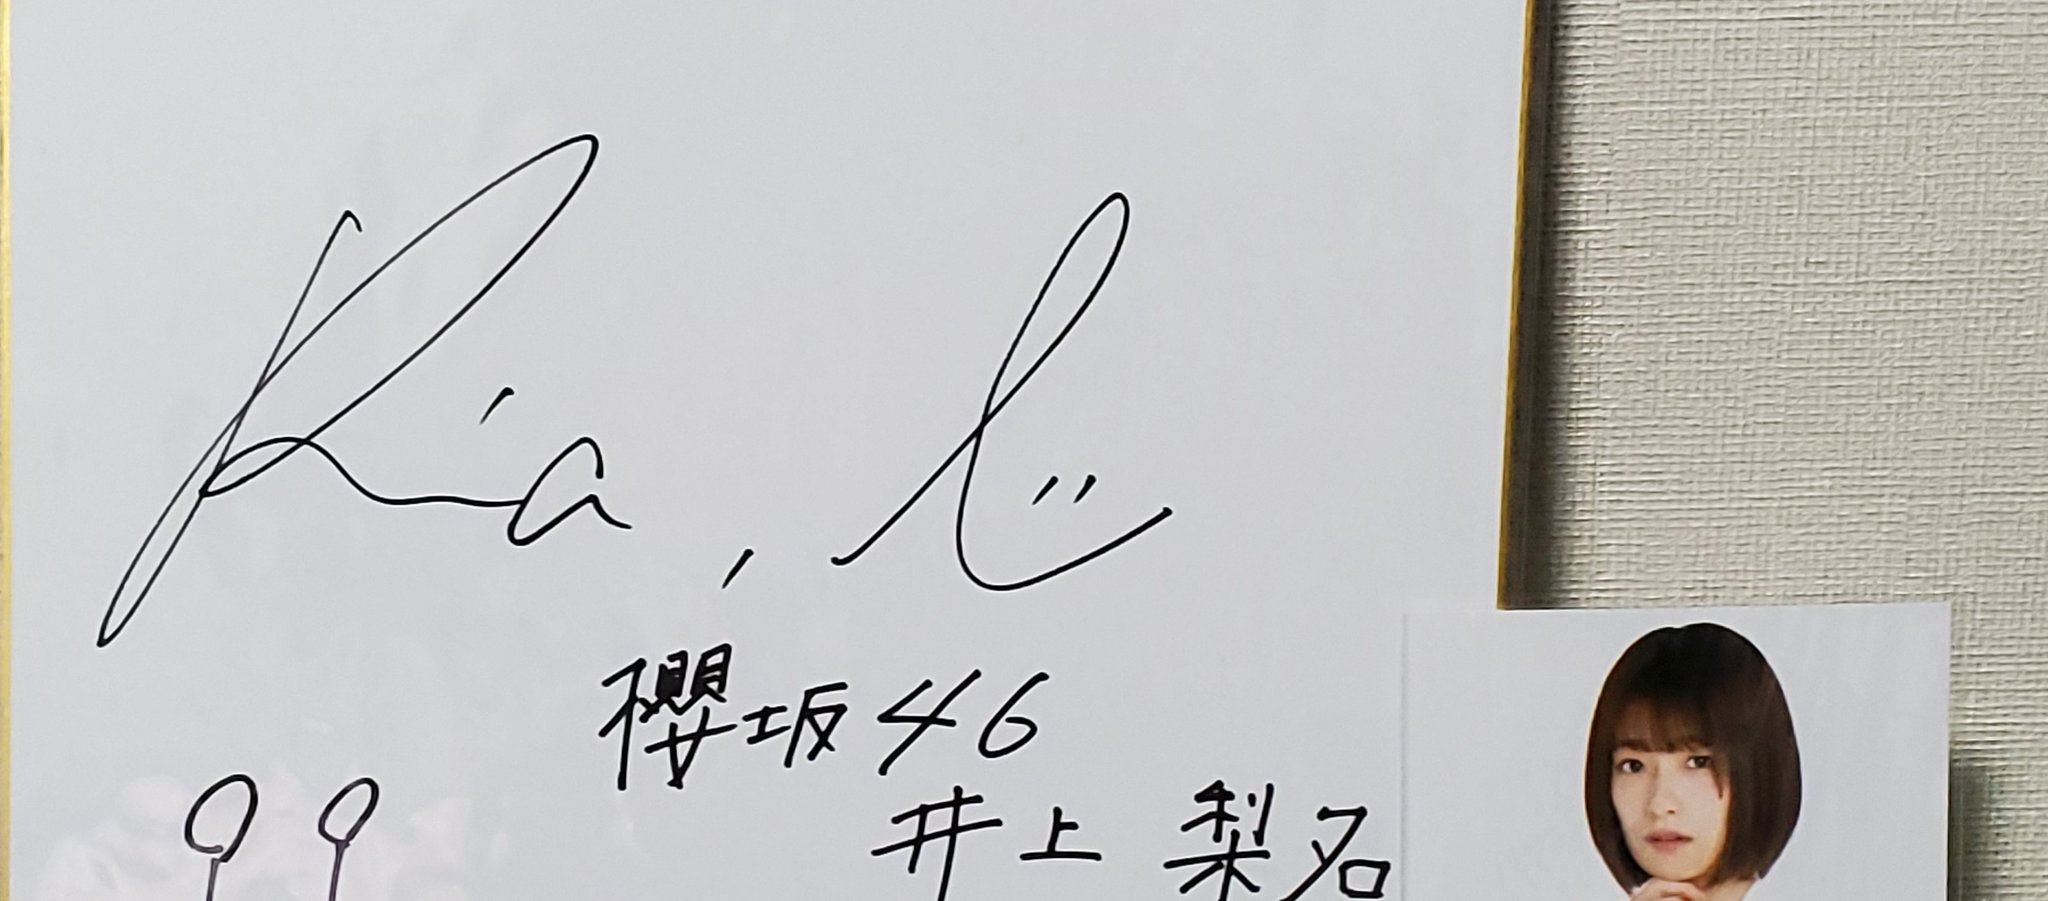 Ria, i
櫻坂46
井上 梨名